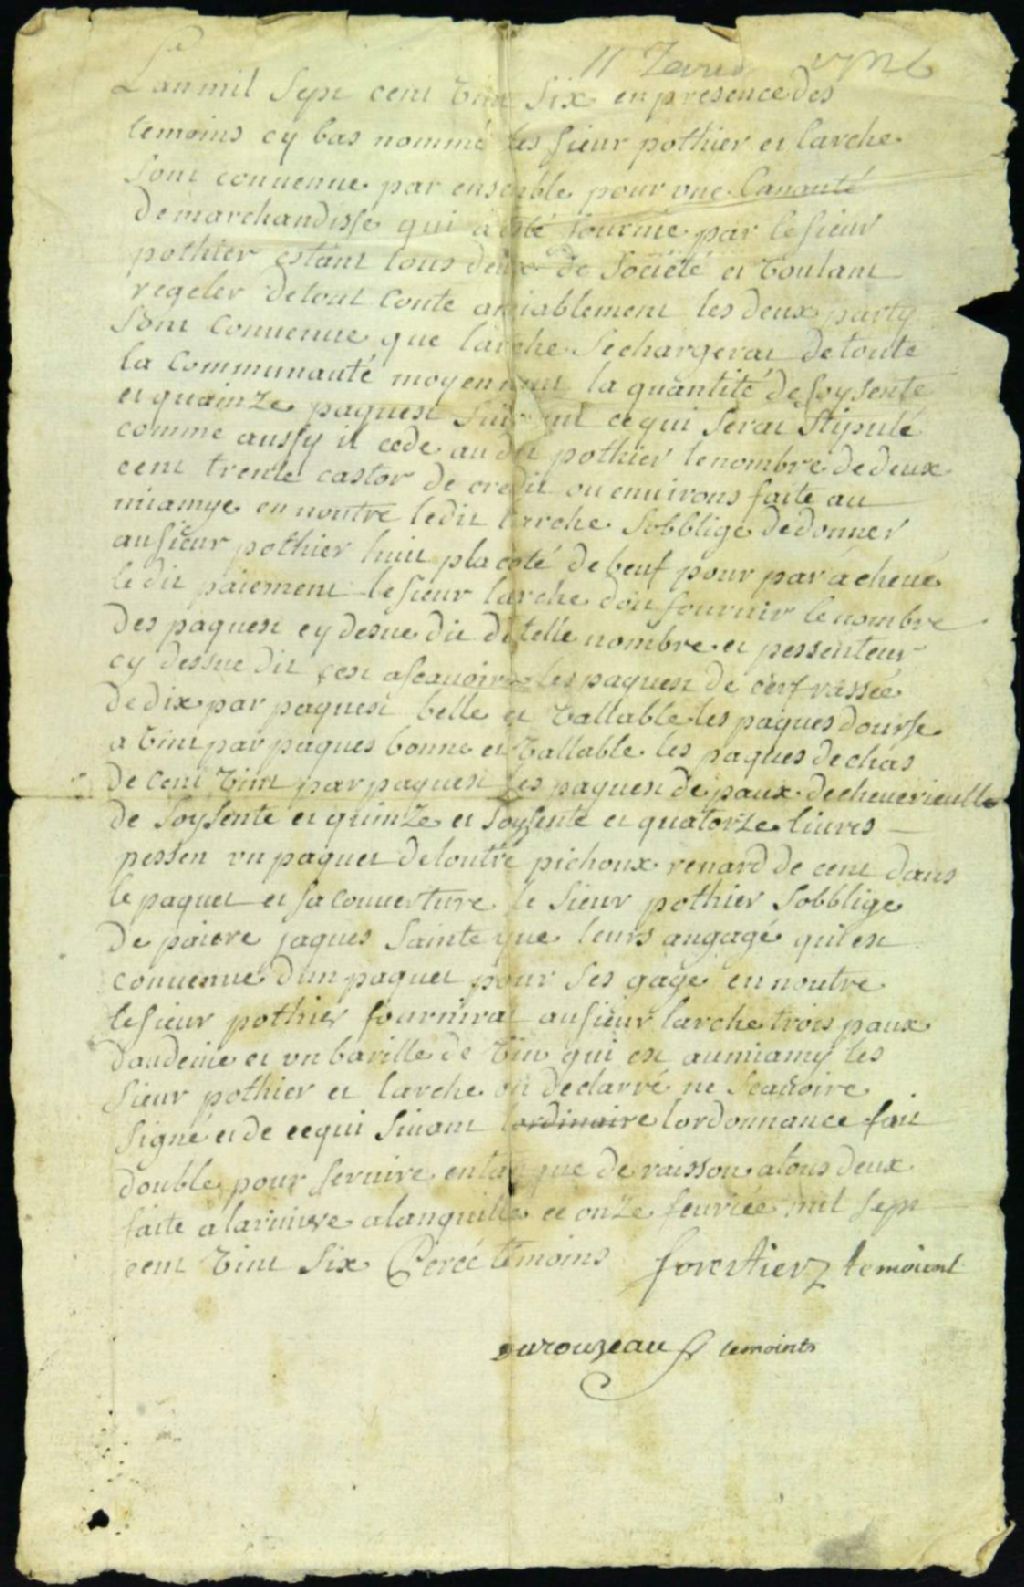 11 fevrie 
L'an mil Sept cent vint Six en presence des
temoins cy bas nommé les sieur pothier et larche
sont conuenue par ensemble pour une
de marchandisse qui a été fournie par le sieur
pothier estant tous deux de Société et voulant
regeler de tout conte amiablement les deux party
sont conuenue que larche se chargerai de toute
la communauté moyennant la quantité de soysente
et quainze paquest suivant ce qui serai stipulé
comme aussy il cede au dit pothier le nombre de deux
cent trente castor de credit ou environs faite au
miamye en noutre le dit larche s'obblige de donner
au sieur pothier huit pla coté de beuf pour par acheué
le dit paiement le sieur larche doit fournir le nombre
des paquest cy desue dit de telle nombre et pessenteur
cy dessue dit sest ascauoire les paquest de cerf rassée
de dix par paquest belle et vallable les paques dourse
a vint par paques bonne et vallable les paques de chas
de cent vint par paquest les paquest de paux de cheuerieulle
de soysente et quinze et soysente et quatorze liures
pessen un paquet de loutre pichoux renard de cent dans
le paquet et sa couuerture le sieur pothier s'obblige
de paiere jaques Sainte que leurs angagé qui est
conuenue d'un paquet pour ses gage en noutre
le sieur pothier fournirai au sieur larche trois paux
daudeine et un barille de vin qui est au miamy les
sieur pothier et larche on declarré ne scauoire
signé et de ce qui siuant lordinaire lordonnance fait
double pour seruire en tan que de raisson a tous deux
faite a la riuiere a languille ce onze feurieé mil sept
cent vint six Percé temoins forestierz temoient
durouzeau temoints